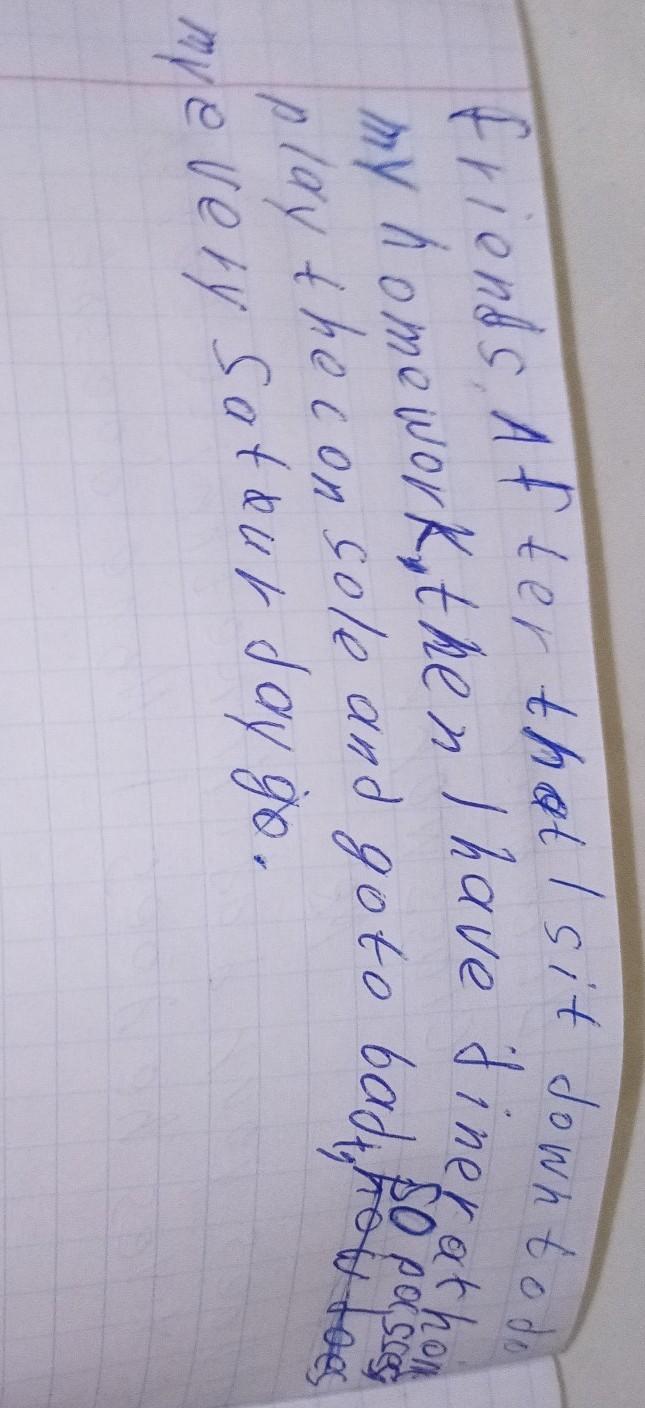 friends. After that I sit down to do
my homework, then I have diner at hom
play the console and go to bad, so passes
my every Saturday go.